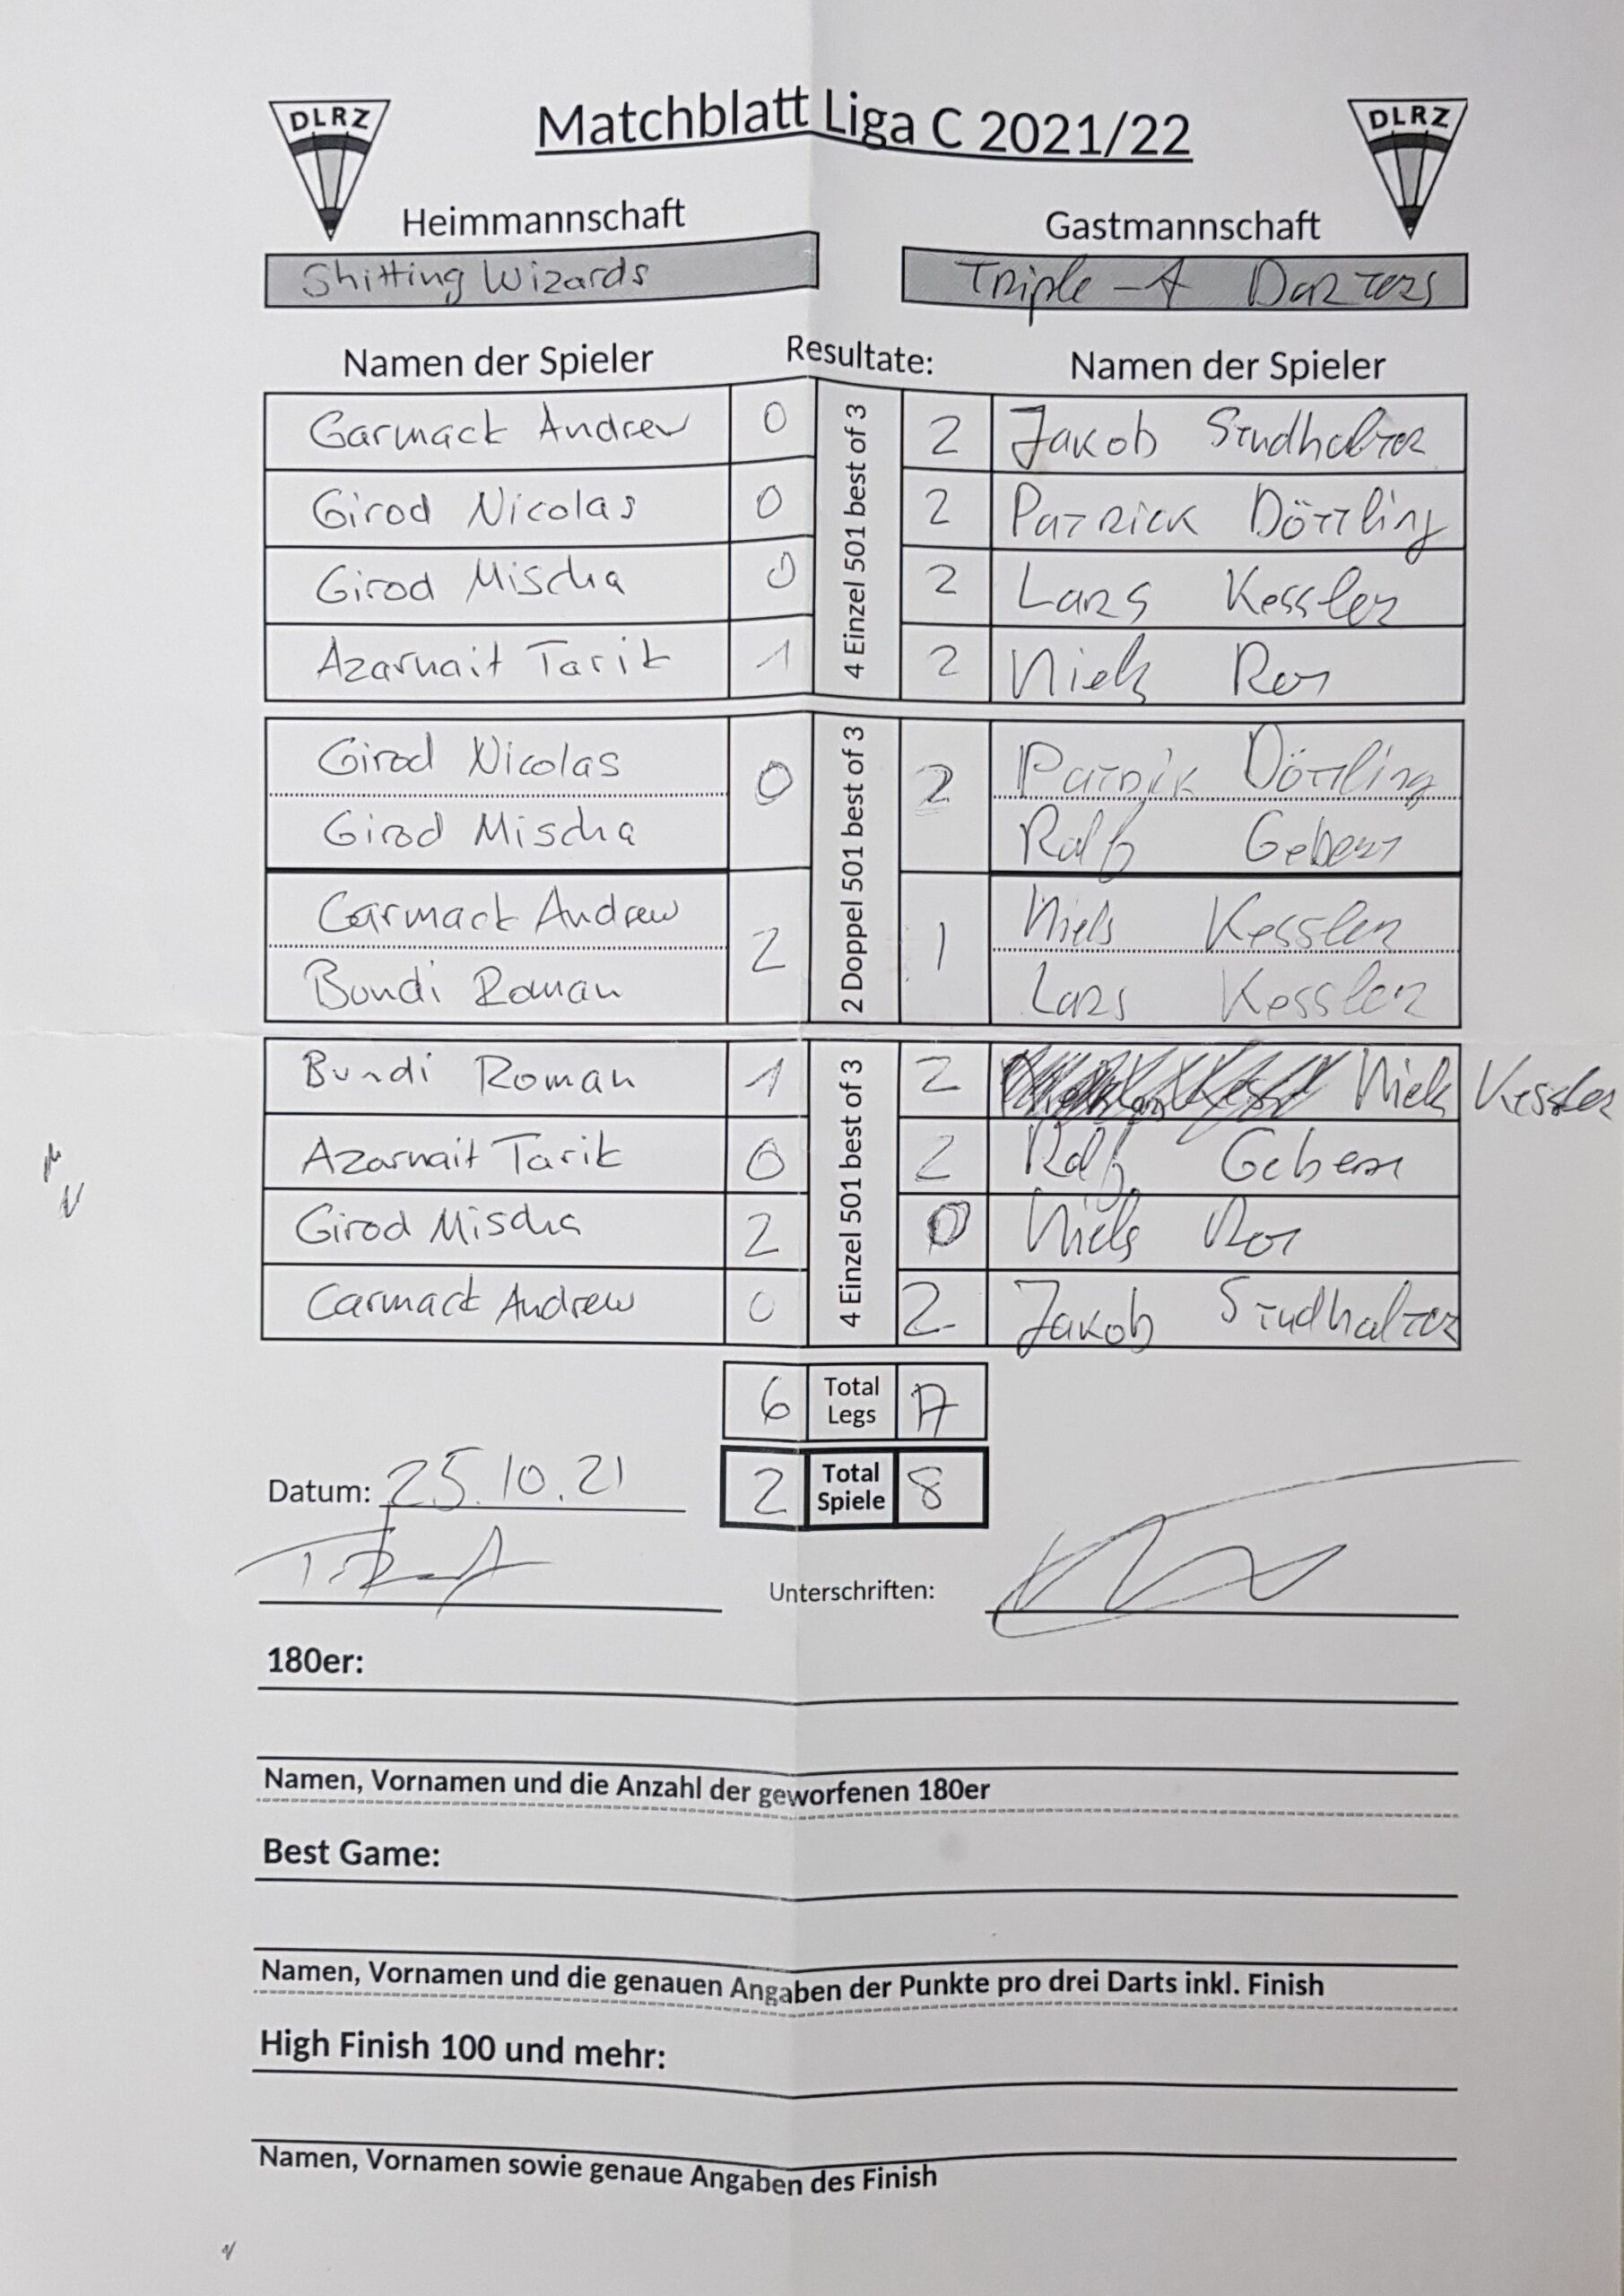 DLRZ Matchblatt Liga C 2021/22 DLRZ
Heimmannschaft Gastmannschaft
Shitting Wizards Triple-A Darters
Namen der Spieler Resultate: Namen der Spieler
4 Einzel 501 best of 3
Garmack Andrew 0 2 Jakob Studhalter
Girod Nicolas 0 2 Patrick Döttling
Girod Mischa 0 2 Lars Kessler
Azarnait Tarik 1 2 Niels Ros
2 Doppel 501 best of 3
Girod Nicolas 0 2 Patrik Döttling
Girod Mischa Ralf
Carmack Andrew 2 1 Niels Kessler
Bundi Roman Lars Kessler
4 Einzel 501 best of 3
Bundi Roman 1 2 Niels Kessler
Azarnait Tarik 0 2 Ralf
Girod Mischa 2 0 Niels Ros
Carmack Andrew 0 2 Jakob Studhalter
6 Total Legs 17
Datum: 25.10.21 2 Total Spiele 8
Unterschriften:
180er:
Namen, Vornamen und die Anzahl der geworfenen 180er
Best Game:
Namen, Vornamen und die genauen Angaben der Punkte pro drei Darts inkl. Finish
High Finish 100 und mehr:
Namen, Vornamen sowie genaue Angaben des Finish